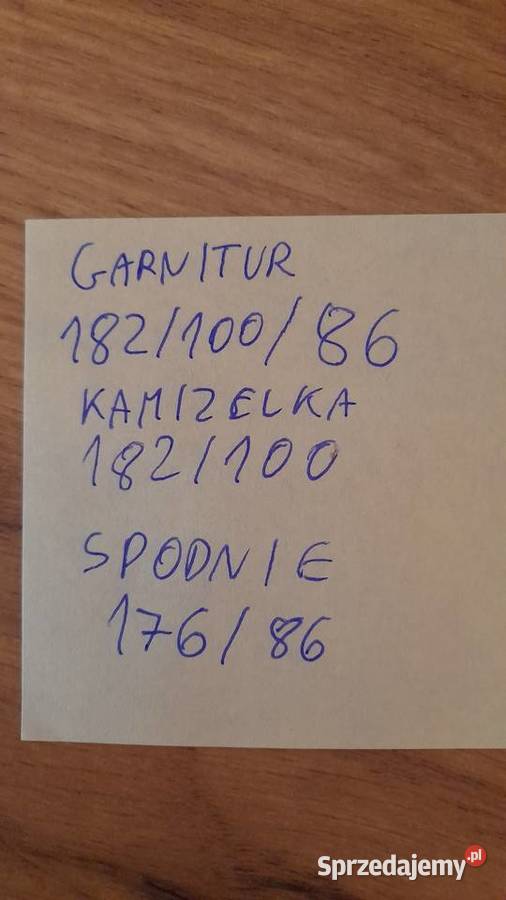 GARNITUR
182/100/86
KAMIZELKA
182/100
SPODNIE
176/86
Sprzedajemy.pl